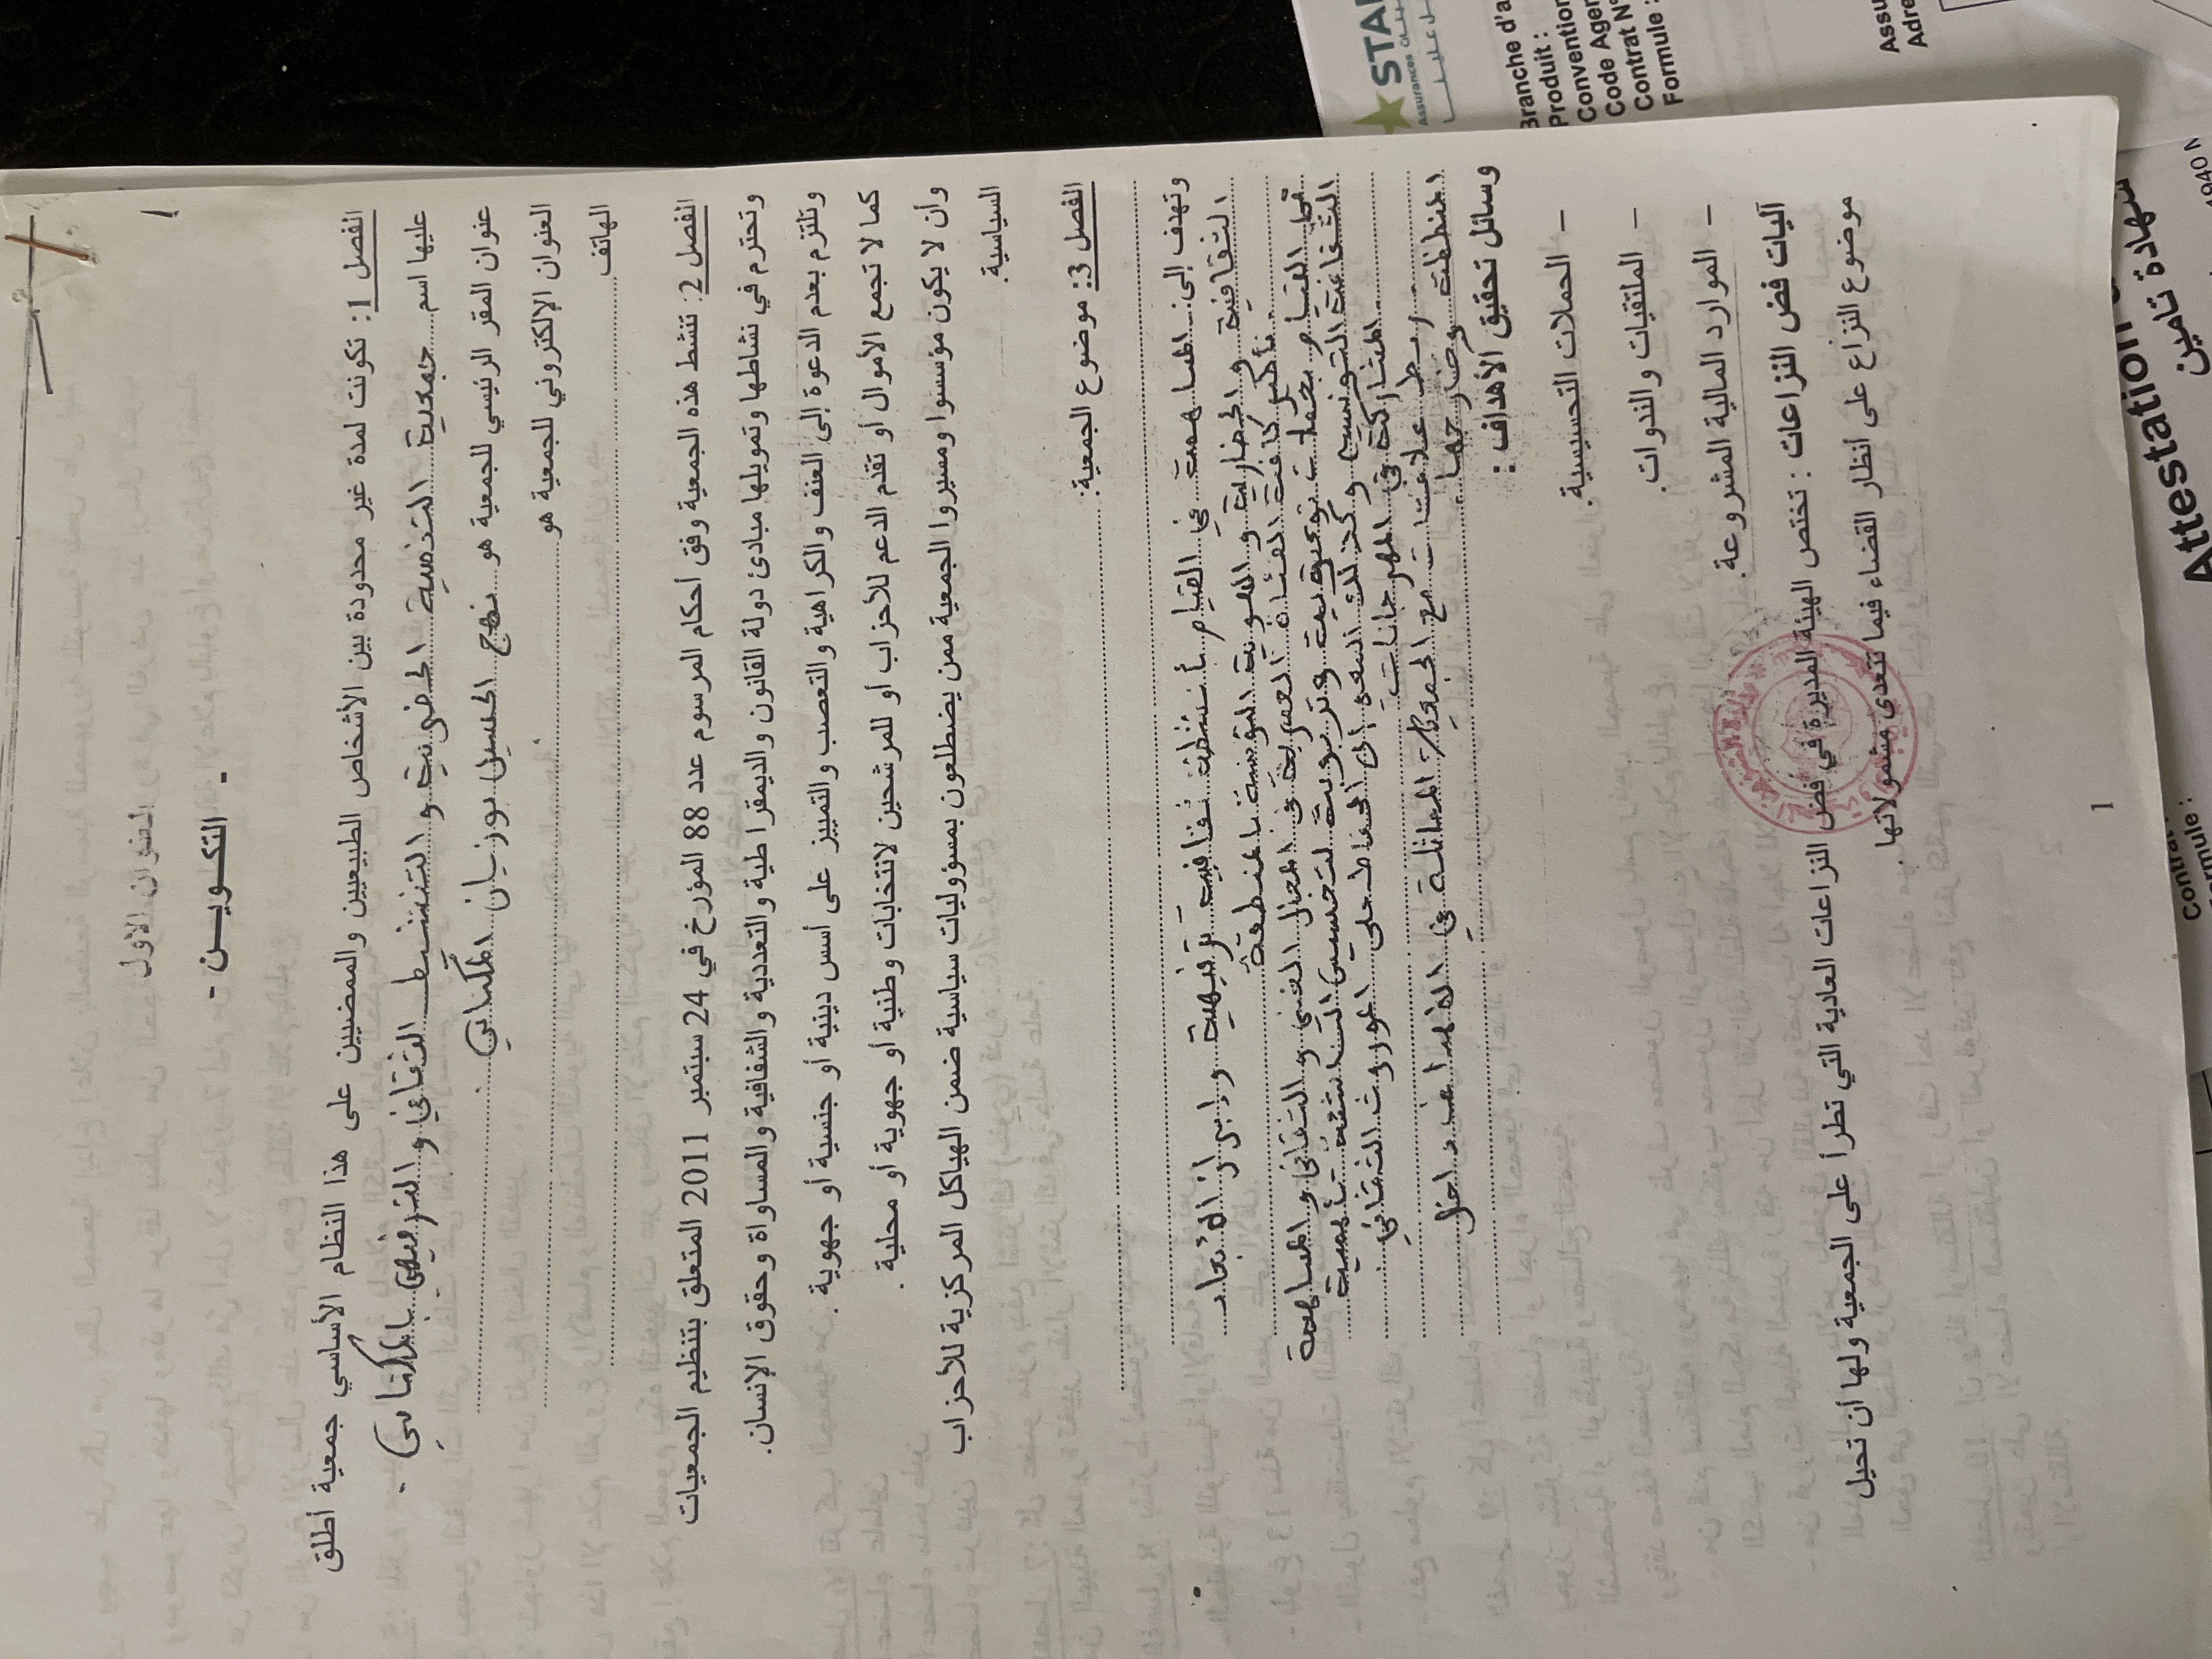 العنوان الأول
- التكويـــن -
الفصل 1: تكونت لمدة غير محدودة بين الأشخاص الطبيعيين والممضيين على هذا النظام الأساسي جمعية أطلق
عليها اسم جمعية التنمية و التنشيط الثقافي و الترفيهي بالمكناسي .
عنوان المقر الرئيسي للجمعية هو نهج الحسين بوزيان المكناسي .
العنوان الإلكتروني للجمعية هو
الهاتف
الفصل 2: تنشط هذه الجمعية وفق أحكام المرسوم عدد 88 المؤرخ في 24 سبتمبر 2011 المتعلق بتنظيم الجمعيات
وتحترم في نشاطها وتمويلها مبادئ دولة القانون والديمقراطية والتعددية والشفافية والمساواة وحقوق الإنسان.
وتلتزم بعدم الدعوة إلى العنف والكراهية والتعصب والتمييز على أسس دينية أو جنسية أو جهوية .
كما لا تجمع الأموال أو تقدم الدعم للأحزاب أو للمرشحين لانتخابات وطنية أو جهوية أو محلية .
وأن لا يكون مؤسسوا ومسيروا الجمعية ممن يضطلعون بمسؤوليات سياسية ضمن الهياكل المركزية للأحزاب
السياسية.
الفصل 3: موضوع الجمعية:
وتهدف إلى: المساهمة في القيام بأنشطة ثقافية ترفيهية و إبراز الأبعاد
الثقافية و الحضارية و الهوية التونسية بالمنطقة
تأطير كافة الفئات العمرية في المجال الفني و الثقافي و المساهمة
القيام بحملات توعوية وتربوية لتحسيس الناشئة بأهمية
الثقافة التونسية و كذلك السعي إلى الحفاظ على الموروث الثقافي
المشاركة في المهرجانات
ربط علاقات مع الجمعيات المماثلة في الأهداف داخل
المنطقة وخارجها .
وسائل تحقيق الأهداف :
- الحملات التحسيسية.
- الملتقيات والندوات.
- الموارد المالية المشروعة.
آليات فض النزاعات : تختص الهيئة المديرة في فض النزاعات العادية التي تطرأ على الجمعية ولها أن تحيل
موضوع النزاع على أنظار القضاء فيما تتعدى مشمولاتها.
1
STAR
Assurances
Branche d'a
Produit :
Convention
Code Agen
Contrat N°
Formule :
Assu
Adre
Attestation
شهادة تأمين
1940 N
Contrat :
Formule :